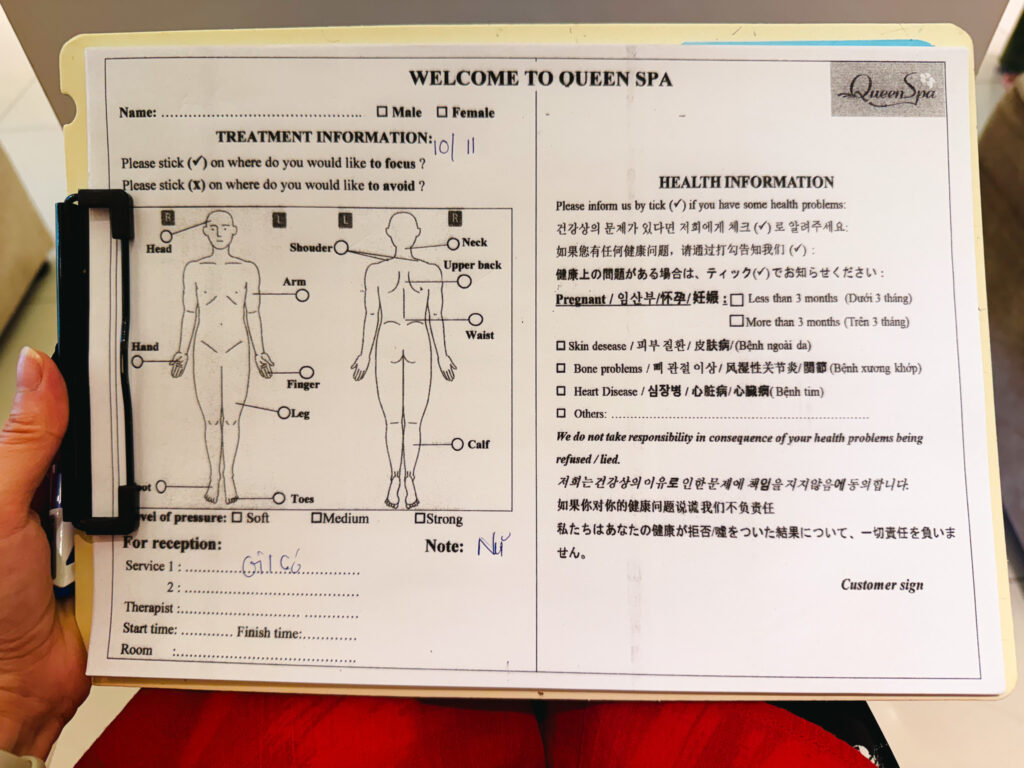 WELCOME TO QUEEN SPA
QueenSpa
Name: ............................................. □ Male □ Female
TREATMENT INFORMATION: 10/11
Please stick (✓) on where do you would like to focus ?
Please stick (x) on where do you would like to avoid ?
R L L R
Head
Shouder
Neck
Upper back
Arm
Waist
Hand
Finger
Leg
Calf
oot
Toes
evel of pressure: □ Soft □Medium □Strong
For reception: Note: Nữ
Service 1 : ................................
2 : ................................
Therapist :................................
Start time: ............ Finish time:............
Room :................................
HEALTH INFORMATION
Please inform us by tick (✓) if you have some health problems:
건강상의 문제가 있다면 저희에게 체크 (✓) 로 알려주세요:
如果您有任何健康问题，请通过打勾告知我们 (✓) :
健康上の問題がある場合は、ティック(✓)でお知らせください :
Pregnant / 임산부/怀孕/ 妊娠 : □ Less than 3 months (Dưới 3 tháng)
□More than 3 months (Trên 3 tháng)
□ Skin desease / 피부 질환/ 皮肤病/ (Bệnh ngoài da)
□ Bone problems / 뼈 관절 이상/ 风湿性关节炎/ 関節 (Bệnh xương khớp)
□ Heart Disease / 심장병 / 心脏病/ 心臓病( Bệnh tim)
□ Others: ................................
We do not take responsibility in consequence of your health problems being
refused / lied.
저희는 건강상의 이유로 인한 문제에 책임을 지지않음에 동의합니다.
如果你对你的健康问题说谎我们不负责任
私たちはあなたの健康が拒否/嘘をついた結果について、一切責任を負いま
せん。
Customer sign